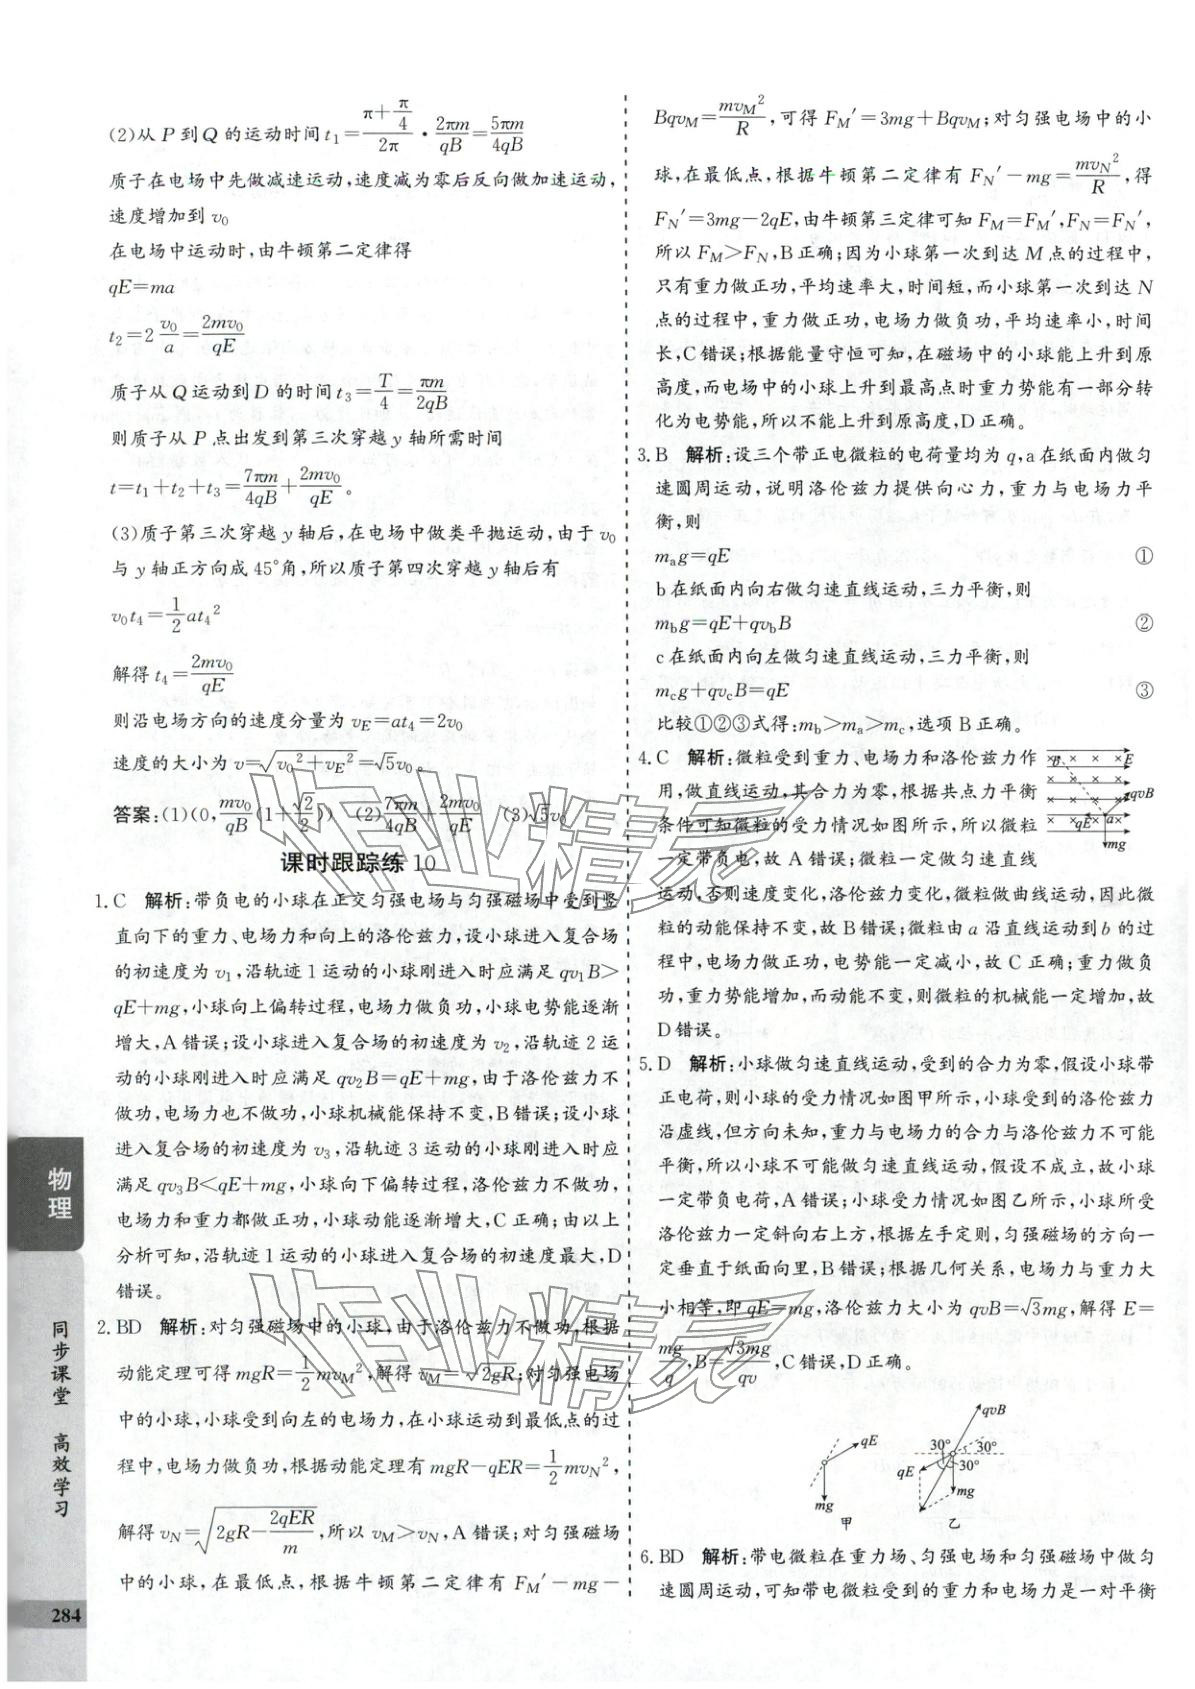 (2)从 P 到 Q 的运动时间 t₁=(π+π/4)/2π·2πm/qB=5πm/4qB
质子在电场中先做减速运动,速度减为零后反向做加速运动,
速度增加到 v₀
在电场中运动时,由牛顿第二定律得
qE=ma
t₂=2 v₀/a=2mv₀/qE
质子从 Q 运动到 D 的时间 t₃=T/4=πm/2qB
则质子从 P 点出发到第三次穿越 y 轴所需时间
t=t₁+t₂+t₃=7πm/4qB+2mv₀/qE。
(3)质子第三次穿越 y 轴后,在电场中做类平抛运动,由于 v₀
与 y 轴正方向成 45°角,所以质子第四次穿越 y 轴后有
v₀t₄=1/2at₄²
解得 t₄=2mv₀/qE
则沿电场方向的速度分量为 v_E=at₄=2v₀
速度的大小为 v=√(v₀²+v_E²)=√5v₀。
答案:(1)(0,mv₀/qB(1+√2/2)) (2)7πm/4qB+2mv₀/qE (3)√5v₀
课时跟踪练 10
1.C 解析:带负电的小球在正交匀强电场与匀强磁场中受到竖
直向下的重力、电场力和向上的洛伦兹力,设小球进入复合场
的初速度为 v₁,沿轨迹 1 运动的小球刚进入时应满足 qv₁B>
qE+mg,小球向上偏转过程,电场力做负功,小球电势能逐渐
增大,A 错误;设小球进入复合场的初速度为 v₂,沿轨迹 2 运
动的小球刚进入时应满足 qv₂B=qE+mg,由于洛伦兹力不
做功,电场力也不做功,小球机械能保持不变,B 错误;设小球
进入复合场的初速度为 v₃,沿轨迹 3 运动的小球刚进入时应
满足 qv₃B<qE+mg,小球向下偏转过程,洛伦兹力不做功,
电场力和重力都做正功,小球动能逐渐增大,C 正确;由以上
分析可知,沿轨迹 1 运动的小球进入复合场的初速度最大,D
错误。
2.BD 解析:对匀强磁场中的小球,由于洛伦兹力不做功,根据
动能定理可得 mgR=1/2mv_M²,解得 v_M=√2gR;对匀强电场
中的小球,小球受到向左的电场力,在小球运动到最低点的过
程中,电场力做负功,根据动能定理有 mgR-qER=1/2mv_N²,
解得 v_N=√(2gR-2qER/m),所以 v_M>v_N,A 错误;对匀强磁场
中的小球,在最低点,根据牛顿第二定律有 F_M′-mg-
Bqv_M=mv_M²/R,可得 F_M′=3mg+Bqv_M;对匀强电场中的小
球,在最低点,根据牛顿第二定律有 F_N′-mg=mv_N²/R,得
F_N′=3mg-2qE,由牛顿第三定律可知 F_M=F_M′,F_N=F_N′,
所以 F_M>F_N,B 正确;因为小球第一次到达 M 点的过程中,
只有重力做正功,平均速率大,时间短,而小球第一次到达 N
点的过程中,重力做正功,电场力做负功,平均速率小,时间
长,C 错误;根据能量守恒可知,在磁场中的小球能上升到原
高度,而电场中的小球上升到最高点时重力势能有一部分转
化为电势能,所以不能上升到原高度,D 正确。
3.B 解析:设三个带正电微粒的电荷量均为 q,a 在纸面内做匀
速圆周运动,说明洛伦兹力提供向心力,重力与电场力平
衡,则
mₐg=qE ①
b 在纸面内向右做匀速直线运动,三力平衡,则
m_bg=qE+qv_bB ②
c 在纸面内向左做匀速直线运动,三力平衡,则
m_cg+qv_cB=qE ③
比较①②③式得:m_b>mₐ>m_c,选项 B 正确。
4.C 解析:微粒受到重力、电场力和洛伦兹力作
用,做直线运动,其合力为零,根据共点力平衡
条件可知微粒的受力情况如图所示,所以微粒
一定带负电,故 A 错误;微粒一定做匀速直线
运动,否则速度变化,洛伦兹力变化,微粒做曲线运动,因此微
粒的动能保持不变,故 B 错误;微粒由 a 沿直线运动到 b 的过
程中,电场力做正功,电势能一定减小,故 C 正确;重力做负
功,重力势能增加,而动能不变,则微粒的机械能一定增加,故
D 错误。
B E
qvB
qE a
mg
5.D 解析:小球做匀速直线运动,受到的合力为零,假设小球带
正电荷,则小球的受力情况如图甲所示,小球受到的洛伦兹力
沿虚线,但方向未知,重力与电场力的合力与洛伦兹力不可能
平衡,所以小球不可能做匀速直线运动,假设不成立,故小球
一定带负电荷,A 错误;小球受力情况如图乙所示,小球所受
洛伦兹力一定斜向右上方,根据左手定则,匀强磁场的方向一
定垂直于纸面向里,B 错误;根据几何关系,电场力与重力大
小相等,即 qE=mg,洛伦兹力大小为 qvB=√3mg,解得 E=
mg/q,B=√3mg/qv,C 错误,D 正确。
qE
mg
甲
qvB
30° 30°
qE 30°
mg
乙
6.BD 解析:带电微粒在重力场、匀强电场和匀强磁场中做匀
速圆周运动,可知带电微粒受到的重力和电场力是一对平衡
物理
同步课堂 高效学习
284
作业精灵
作业精灵